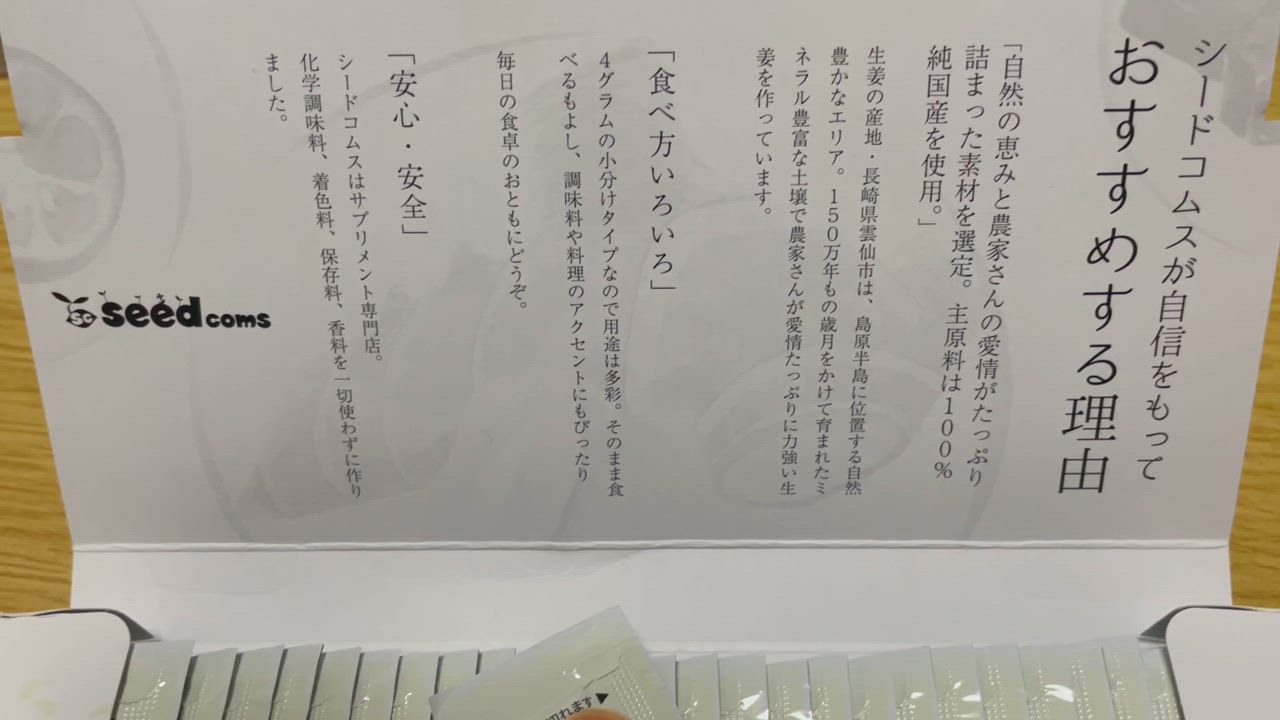 シードコムスが自信をもって
おすすめする理由
「自然の恵みと農家さんの愛情がたっぷり
詰まった素材を選定。主原料は１００％
純国産を使用。」
生姜の産地・長崎県雲仙市は、島原半島に位置する自然
豊かなエリア。１５０万年もの歳月をかけて育まれたミ
ネラル豊富な土壌で農家さんが愛情たっぷりに力強い生
姜を作っています。
「食べ方いろいろ」
４グラムの小分けタイプなので用途は多彩。そのまま食
べるもよし、調味料や料理のアクセントにもぴったり
毎日の食卓のおともにどうぞ。
「安心・安全」
シードコムスはサプリメント専門店。
化学調味料、着色料、保存料、香料を一切使わずに作り
ました。
seed coms
切れます▼